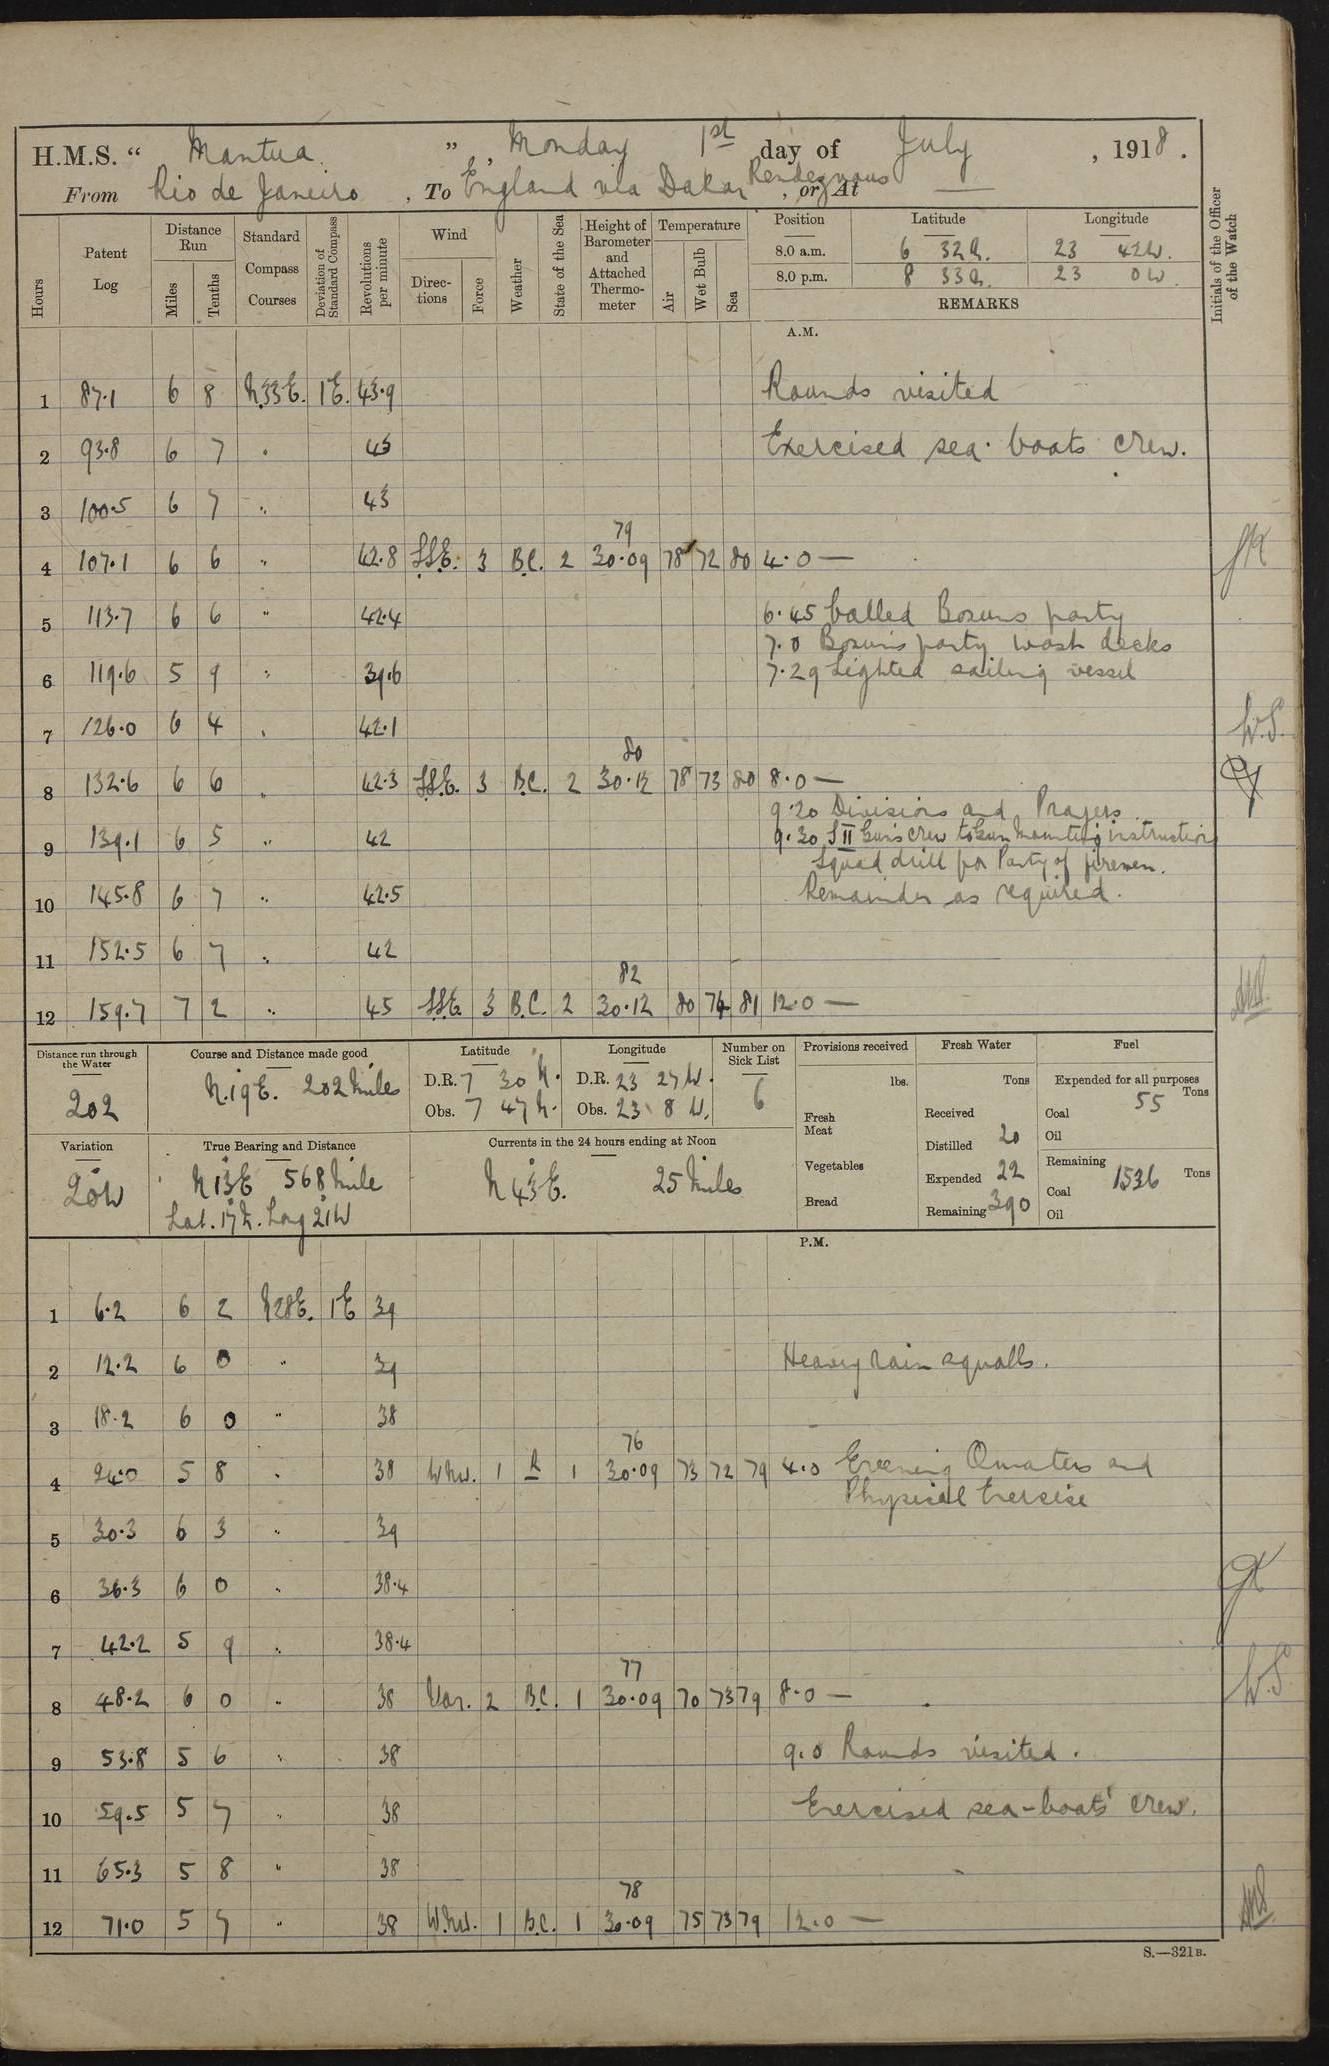 H.M.S. “ Mantua ” , Monday 1st day of July , 1918 .
From Rio de Janeiro , To England via Dakar Rendezvous , or At —
Hours Patent Log Distance Run Miles Tenths Standard Compass Courses Deviation of Standard Compass Revolutions per minute Wind Directions Force Weather State of the Sea Height of Barometer and Attached Thermometer Temperature Air Wet Bulb Sea Position Latitude Longitude Initials of the Officer of the Watch
8.0 a.m. 6 32 N. 23 42 W.
8.0 p.m. 8 33 N. 23 0 W.
REMARKS
A.M.
1 87.1 6 8 N33E. 1E. 43.9 Rounds visited
2 93.8 6 7 " 43 Exercised sea-boats crew.
3 100.5 6 7 " 43
79
4 107.1 6 6 " 42.8 S.S.E. 3 B.C. 2 30.09 78 72 80 4.0 —
5 113.7 6 6 " 42.4 6.45 Called Bosuns party
7.0 Bosun's party wash decks
6 119.6 5 9 " 39.6 7.29 Sighted sailing vessel
7 126.0 6 4 " 42.1 W.S.
80
8 132.6 6 6 " 42.3 S.S.E. 3 B.C. 2 30.12 78 73 80 8.0 —
9.20 Divisions and Prayers
9 139.1 6 5 " 42 9.30 S II Gun's crew to Gun Mounting instruction
Squad drill for Party of firemen.
10 145.8 6 7 " 42.5 Remainder as required.
11 152.5 6 7 " 42
82
12 159.7 7 2 " 45 S.S.E. 3 B.C. 2 30.12 80 74 81 12.0 —
Distance run through the Water
202
Course and Distance made good
N.19E. 202 Miles
Latitude
D.R. 7 30 N.
Obs. 7 47 N.
Longitude
D.R. 23 27 W.
Obs. 23 8 W.
Number on Sick List
6
Variation
20W
True Bearing and Distance
N13E 568 Mile
Lat. 17N. Long 21W
Currents in the 24 hours ending at Noon
N43E. 25 Miles
Provisions received
lbs.
Fresh Meat
Vegetables
Bread
Fresh Water
Tons
Received
Distilled 20
Expended 22
Remaining 390
Fuel
Expended for all purposes
Coal 55 Tons
Oil
Remaining
Coal 1536 Tons
Oil
P.M.
1 6.2 6 2 N28E. 1E 39
2 12.2 6 0 " 39 Heavy rain squalls.
3 18.2 6 0 " 38
76
4 24.0 5 8 " 38 WNW. 1 R 1 30.09 73 72 79 4.0 Evening Quarters and
Physical Exercise
5 30.3 6 3 " 39
6 36.3 6 0 " 38.4
7 42.2 5 9 " 38.4
77
8 48.2 6 0 " 38 Var. 2 B.C. 1 30.09 70 73 79 8.0 — W.S.
9 53.8 5 6 " 38 9.0 Rounds visited.
10 59.5 5 7 " 38 Exercised sea-boats' crew.
11 65.3 5 8 " 38
78
12 71.0 5 7 " 38 W.N.W. 1 B.C. 1 30.09 75 73 79 12.0 —
S.—321B.